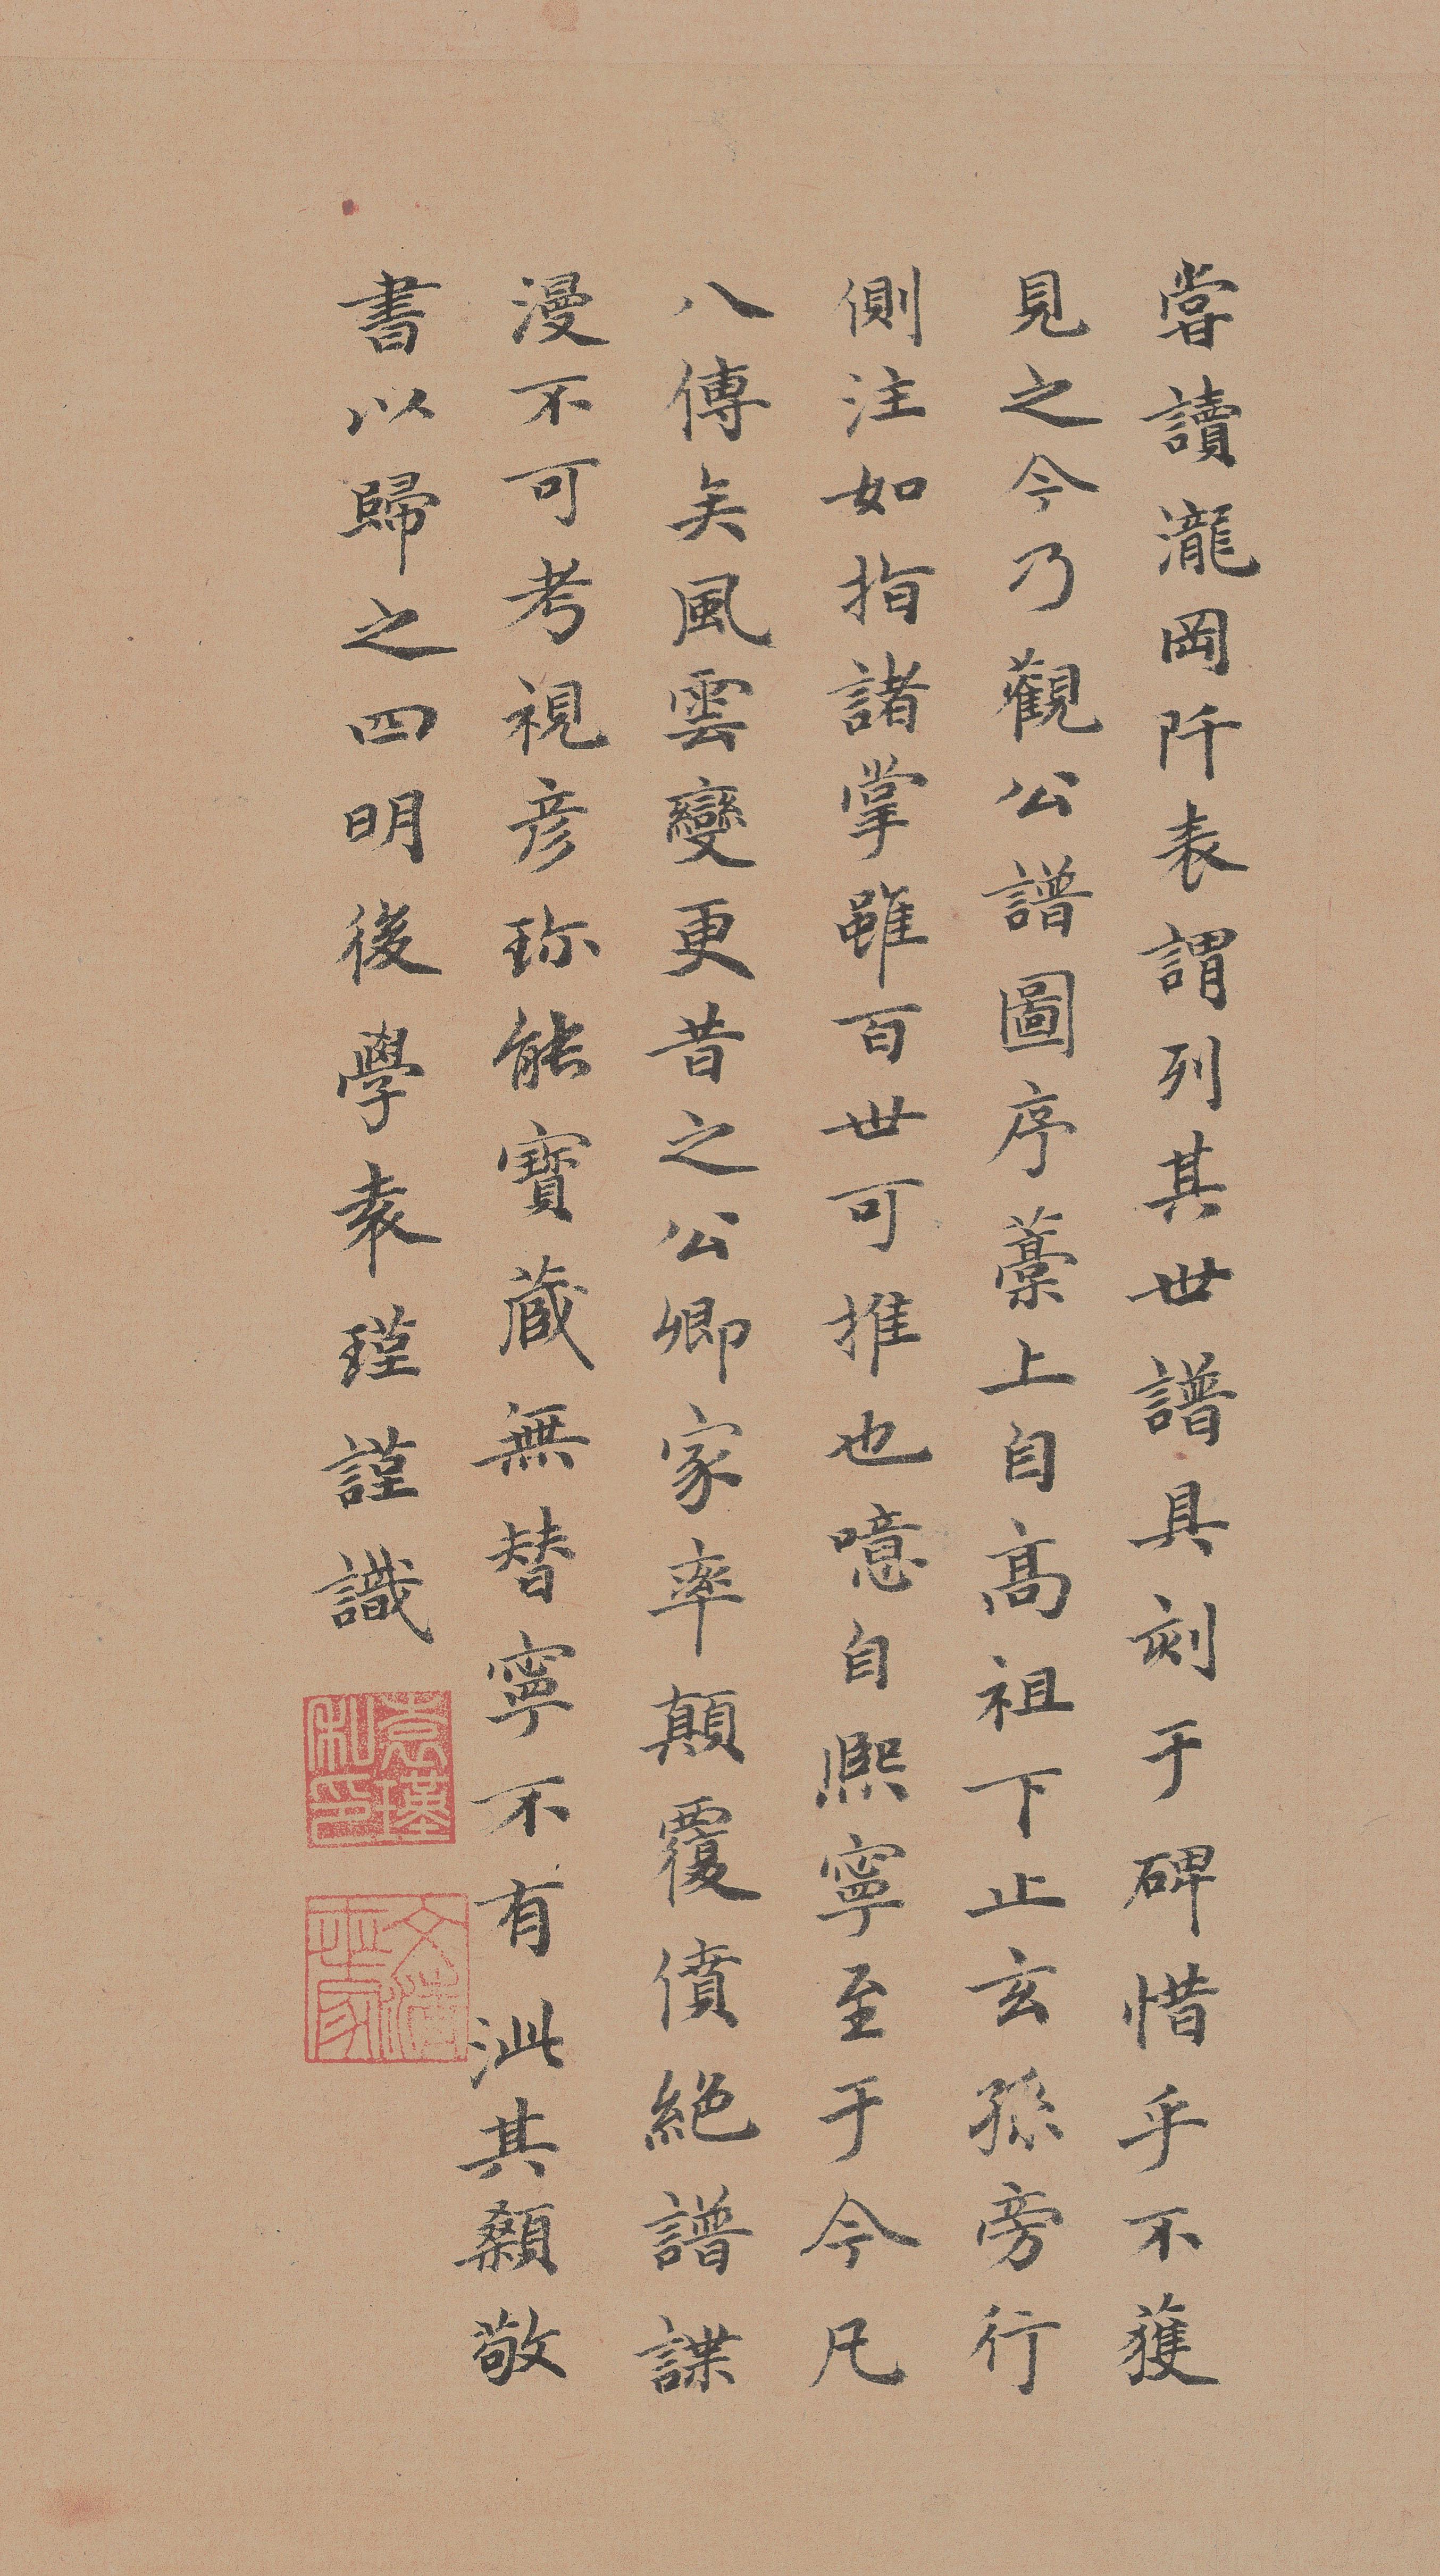 甞讀瀧岡阡表謂列其世譜具刻于碑惜乎不獲
見之今乃觀公譜圖序藁上自高祖下止玄孫旁行
側注如指諸掌雖百世可推也噫自熈寧至于今凡
八傳矣風雲變更昔之公卿家率顛覆僨絕譜諜
漫不可考視彦珎能寶蔵無替寧不有泚其顙敬
書以歸之四明後學袁瑾謹識
袁瑾私印